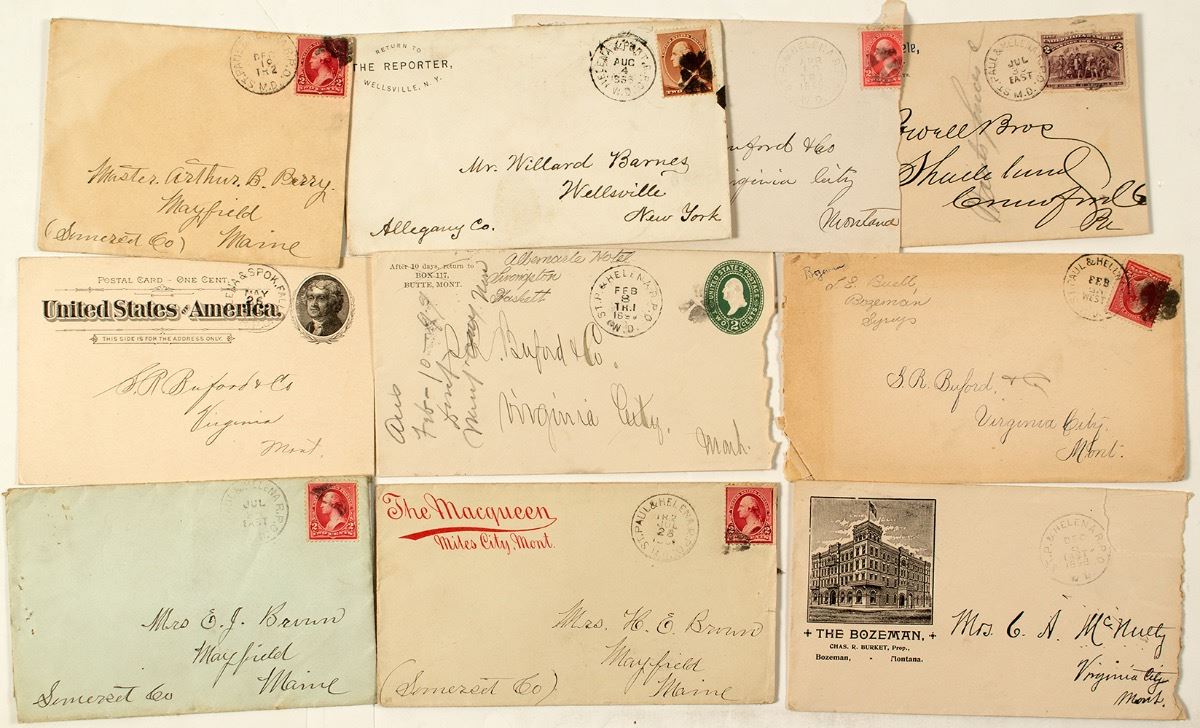 ST.PAUL & HELENA R.P.O.
DEC
TR 2
M.D.
2 TWO CENTS 2
Master. Arthur. B. Berry.
Mayfield
(Somerset Co) Maine
RETURN TO
THE REPORTER,
WELLSVILLE, N.Y.
AUG
4
W.D.
Mr. Willard Barnes
Wellsville
New York
Allegany Co.
uford & Co
rginia City
Montana
ST. PAUL & HELENA
JUL
EAST
M.D.
well Bros
Crawford Co
Pa
POSTAL CARD - ONE CENT.
United States of America.
THIS SIDE IS FOR THE ADDRESS ONLY.
& SPOK.
MAY
S. R. Buford & Co
Virginia
Mont.
After 10 days, return to
BOX 117,
BUTTE, MONT.
Livingston
ST.P. & HELENA R.P.O.
FEB
8
TR.1
W.D.
UNITED STATES POSTAGE
2
TWO CENTS
Ans
Feb-10-
Buford & Co.
Virginia City.
Bozeman
Buell
Bozeman
ST.PAUL & HELENA
FEB
WEST
S. R. Buford. &
Virginia City.
Mont.
HELENA R.P.O.
JUL
EAST
2 TWO CENTS 2
Mrs E. J. Brown
Mayfield
Somerset Co Maine
The Macqueen
Miles City, Mont.
ST. PAUL & HELENA R.P.O.
Mrs. H. E. Brown
Mayfield
(Somerset Co) Maine
THE BOZEMAN,
CHAS. R. BURKET, Prop.,
Bozeman, - Montana.
HELENA R.P.O.
DEC
EAST
W.D.
Mrs. C. A. McNulty
Virginia City
Mont.